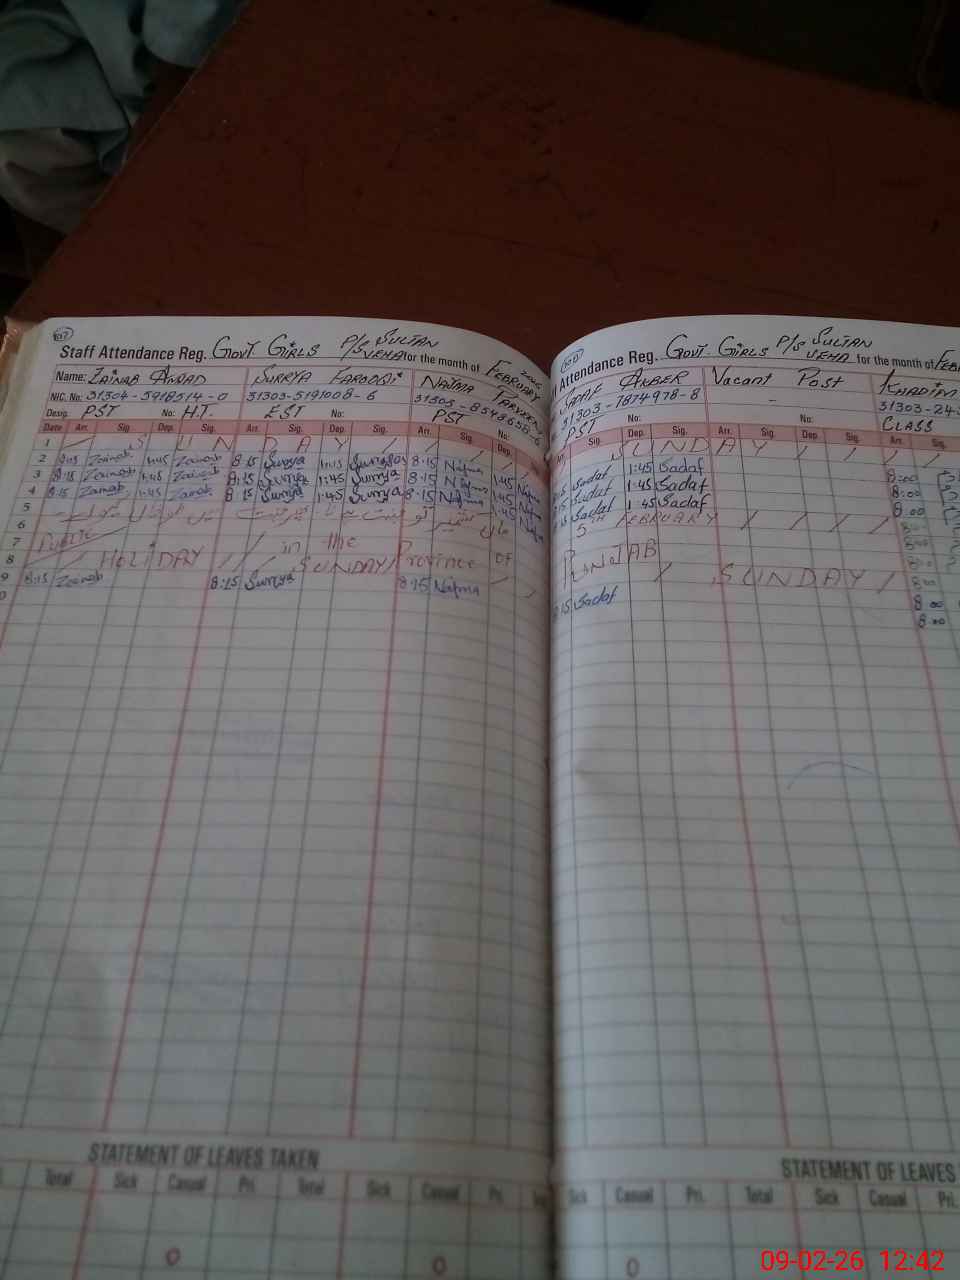 Staff Attendance Reg. Govt. Girls P/S Sultan Veha for the month of February 2026
Name: Zainab Amjad Surrya Farooqi Najma Parveen
NIC. No: 31304-5918514-0 31303-5191008-6 31303-8548658-6
Desig. PST No: H.T. EST No: PST No:
Date Arr. Sig. Dep. Sig. Arr. Sig. Dep. Sig. Arr. Sig. Dep.
1 SUNDAY
2 8:15 Zainab 1:45 Zainab 8:15 Surrya 1:45 Surrya 8:15 Najma 1:45 Najma
3 8:15 Zainab 1:45 Zainab 8:15 Surrya 1:45 Surrya 8:15 Najma 1:45 Najma
4 8:15 Zainab 1:45 Zainab 8:15 Surrya 1:45 Surrya 8:15 Najma 1:45 Najma
5
6 Public
7 HOLIDAY in the Province of
8 SUNDAY
9 8:15 Zainab 8:15 Surrya 8:15 Najma
STATEMENT OF LEAVES TAKEN
Total Sick Casual Pri. Total Sick Casual Pri.
0 0
Attendance Reg. Govt. Girls P/S Sultan Veha for the month of
Sadaf Akber Vacant Post Khadim
31303-7874978-8 - 31303-24
PST No: No: CLASS
Sig. Dep. Sig. Arr. Sig. Dep. Sig. Arr. Sig.
SUNDAY
8:15 Sadaf 1:45 Sadaf 8:00
8:15 Sadaf 1:45 Sadaf 8:00
8:15 Sadaf 1:45 Sadaf 8:00
5th FEBRUARY
PUNJAB
SUNDAY 8:00
8:15 Sadaf 8:00
8:00
STATEMENT OF LEAVES
Sick Casual Pri. Total Sick Casual Pri.
0
09-02-26 12:42